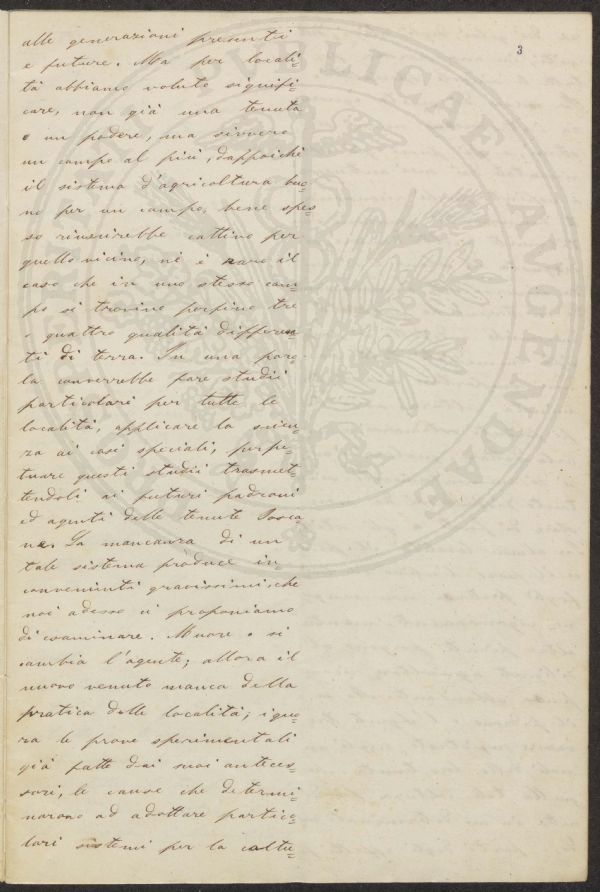 3
alle generazioni presenti
e future. Ma per locali=
tà abbiamo voluto signifi=
care, non già una tenuta
o un podere, ma sivvero
un campo al più, dappoichè
il sistema d'agricoltura buo=
no per un campo, bene spes=
so riuscirebbe cattivo per
quello vicino, nè è raro il
caso che in uno stesso cam=
po si trovino perfino tre
o quattro qualità differen=
ti di terra. In una paro=
la converrebbe fare studii
particolari per tutte le
località, applicare la scien=
za ai casi speciali, perpe=
tuare questi studii trasmet=
tendoli ai futuri padroni
ed agenti delle tenute Tosca=
ne. La mancanza di un
tale sistema produce in=
convenienti gravissimi, che
noi adesso ci proponiamo
di esaminare. Muore o si
cambia l'agente; allora il
nuovo venuto manca della
pratica delle località; igno=
ra le prove sperimentali
già fatte dai suoi anteces=
sori, le cause che determi=
narono ad adottare partico=
lari sistemi per la coltu=
PUBLICAE
AUGENDAE